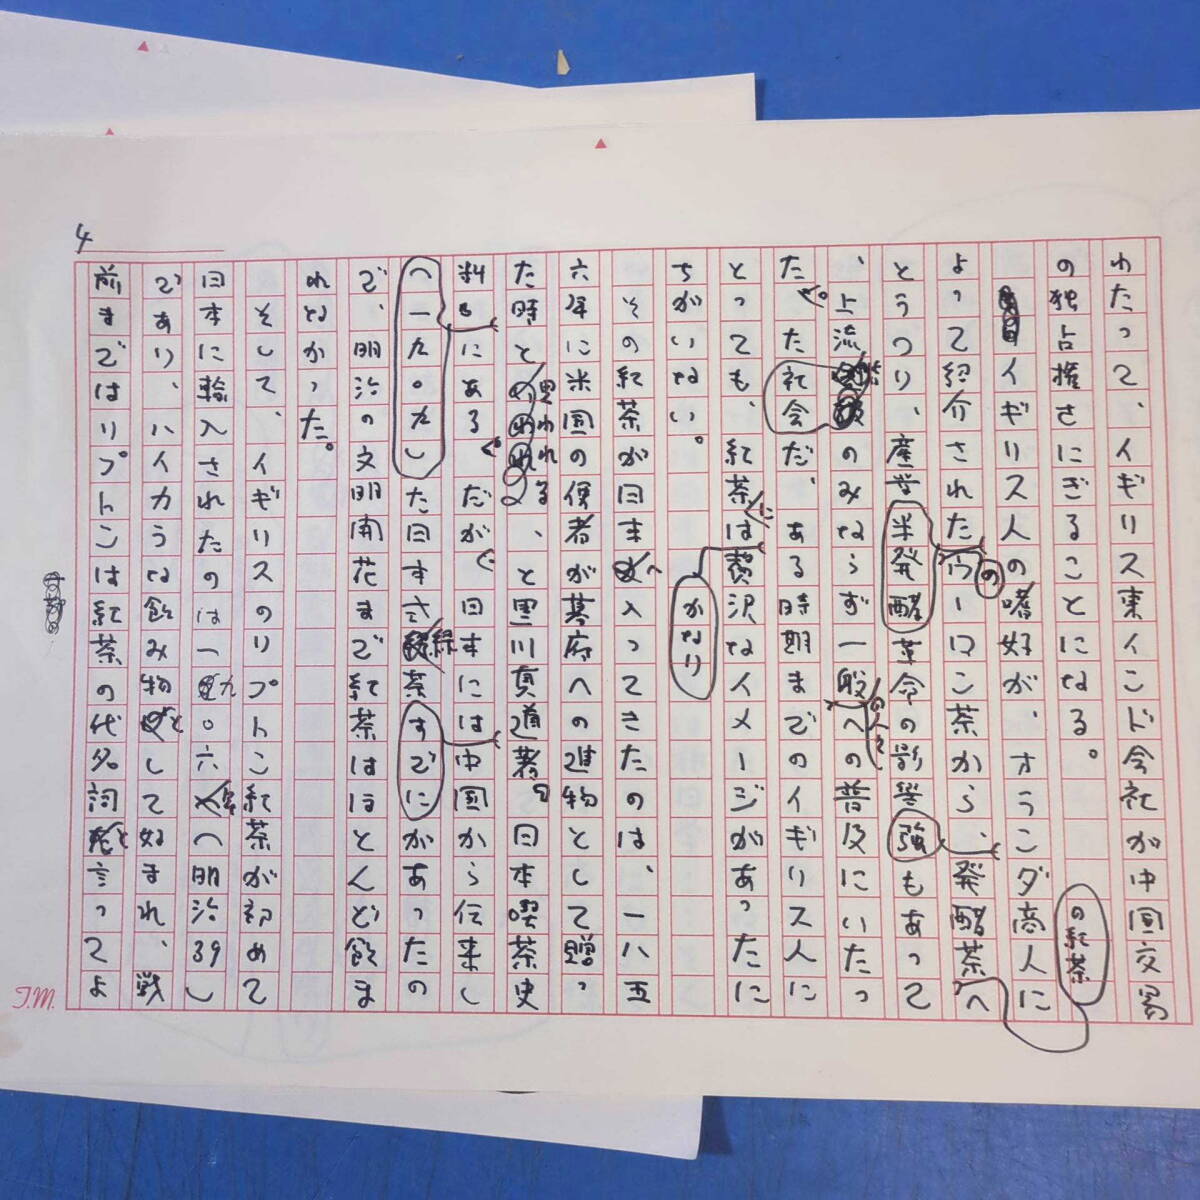 4
わたって、イギリス東インド会社が中国交易
の独占権さにぎることになる。
の紅茶
イギリス人の嗜好が、オランダ商人に
よって紹介されたウーロン茶から、発酵茶へ
の
半発酵
とうつり、産業革命の影響もあって
強
、上流のみならず一般への普及にいたっ
の人々
た。
社会
ただ、ある時期までのイギリス人に
とっても、紅茶は贅沢なイメージがあったに
に
かなり
ちがいない。
その紅茶が日本へ入ってきたのは、一八五
六年に米国の使者が幕府への進物として贈っ
た時と思われる、と黒川真道著の日本喫茶史
料にある。だが、日本には中国から伝来し
(一九〇九)
た日本式緑茶がすでにあったの
で、明治の文明開花まで紅茶はほとんど飲ま
れなかった。
そして、イギリスのリプトン紅茶が初めて
日本に輸入されたのは一九〇六年(明治39)
であり、ハイカラな飲み物として好まれ、戦
前まではリプトンは紅茶の代名詞と言ってよ
T.M.